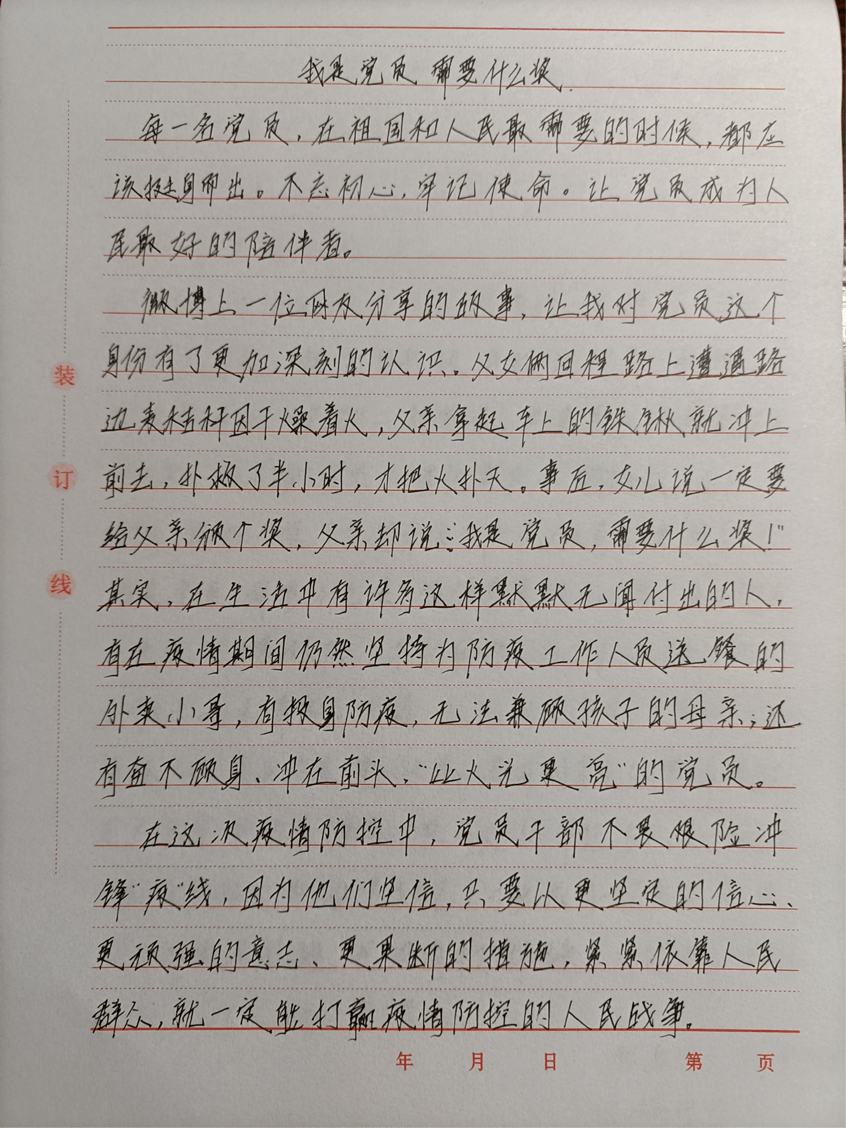 我是党员 需要什么奖
每一名党员，在祖国和人民最需要的时候，都应
该挺身而出。不忘初心，牢记使命。让党员成为人
民最好的陪伴者。
微博上一位网友分享的故事，让我对党员这个
身份有了更加深刻的认识。父女俩回程路上遭遇路
边麦秸秆因干燥着火，父亲拿起车上的铁锹就冲上
前去，扑救了半小时，才把火扑灭。事后，女儿说一定要
给父亲颁个奖，父亲却说：“我是党员，需要什么奖！”
其实，在生活中有许多这样默默无闻付出的人，
有在疫情期间仍然坚持为防疫工作人员送餐的
外卖小哥，有投身防疫，无法兼顾孩子的母亲；还
有奋不顾身、冲在前头、“比火光更亮”的党员。
在这次疫情防控中，党员干部不畏艰险冲
锋“疫”线，因为他们坚信，只要以更坚定的信心、
更顽强的意志、更果断的措施，紧紧依靠人民
群众，就一定能打赢疫情防控的人民战争。
装
订
线
年 月 日 第 页